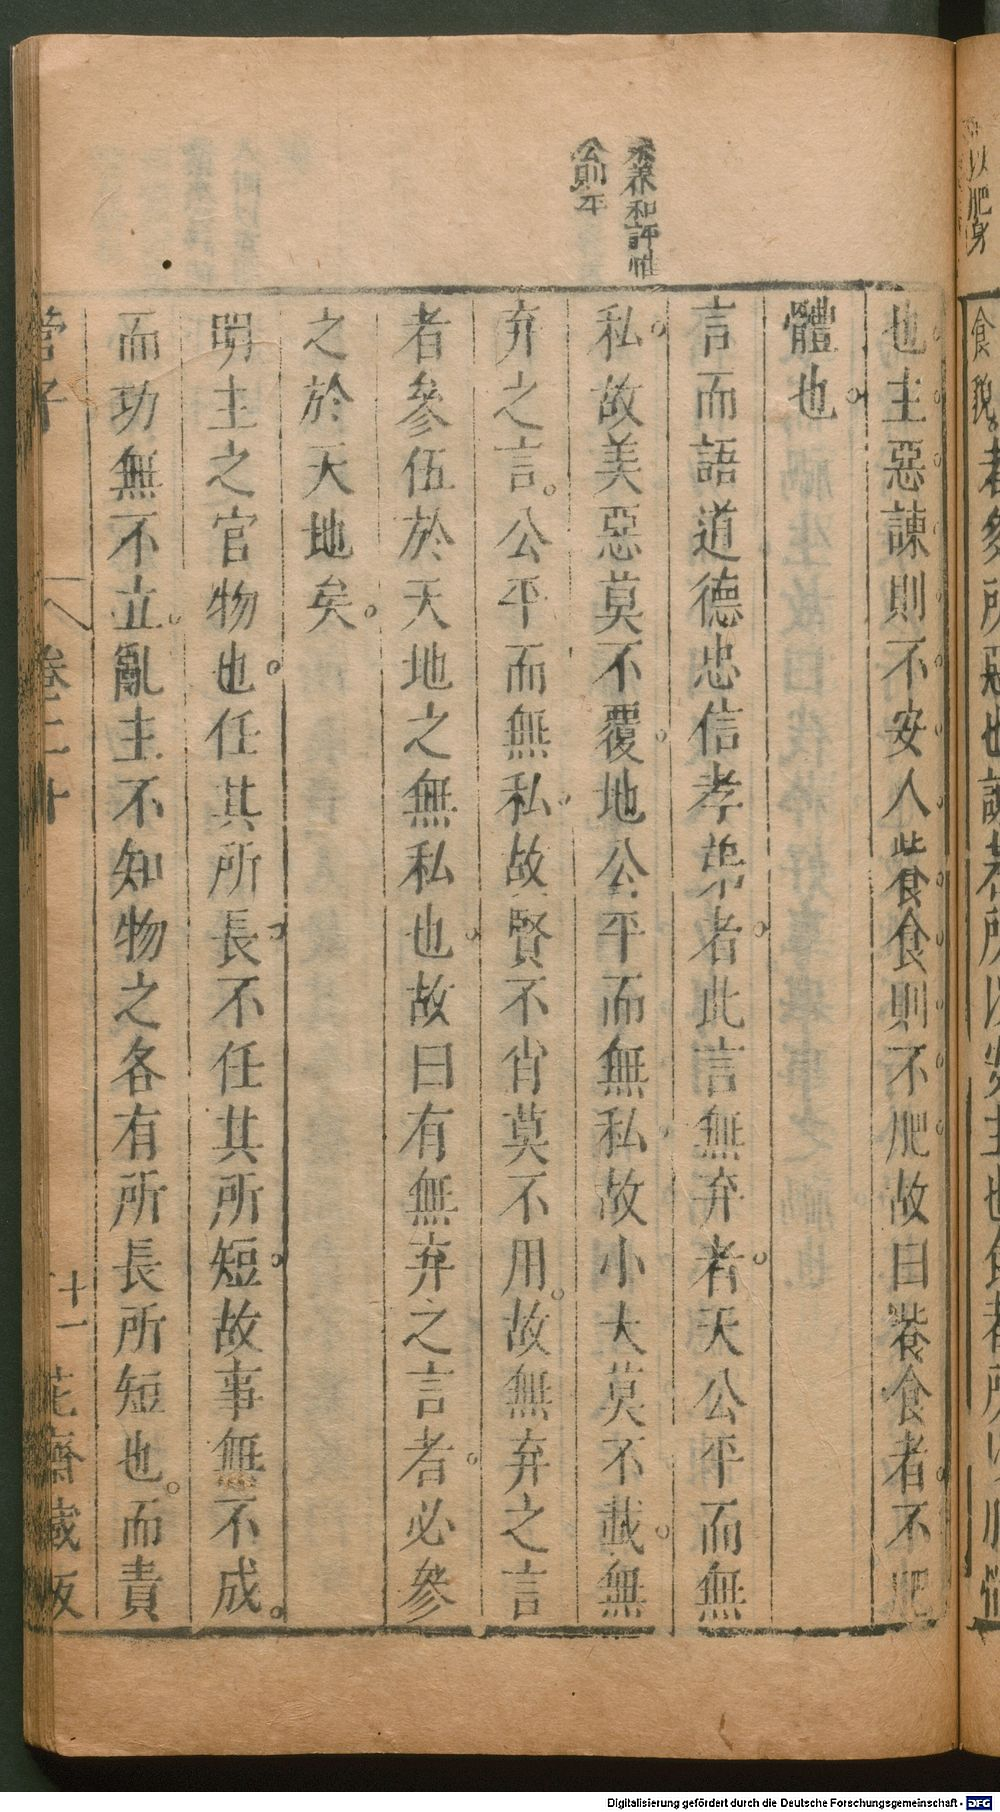 以肥身
食
者多所惡也諫者所以安主也食者所以肥
朱養和評惟
公則平
也主惡諫則不安人飺食則不肥故曰飺食者不肥
體也。
言而語道德忠信孝弟者。此言無弃者。天公平而無
私。故美惡莫不覆。地公平而無私。故小大莫不載。無
弃之言。公平而無私。故賢不肖莫不用。故無弃之言
者參伍於天地之無私也。故曰有無弃之言者。必參
之於天地矣。
明主之官物也。任其所長。不任其所短。故事無不成。
而功無不立。亂主不知物之各有所長所短也。而責
管子 卷二十 十一 花齋藏板
Digitalisierung gefördert durch die Deutsche Forschungsgemeinschaft - DFG